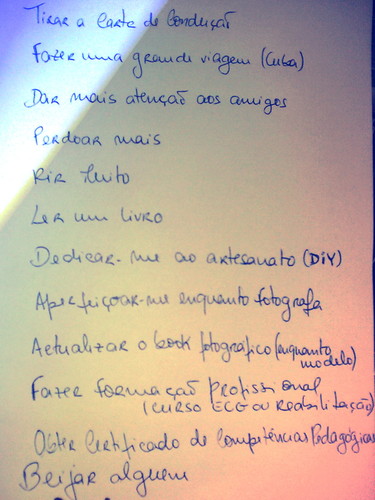 Tirar a carta de condução
Fazer uma grande viagem (Cuba)
Dar mais atenção aos amigos
Perdoar mais
Rir Muito
Ler um livro
Dedicar-me ao artesanato (DiY)
Aperfeiçoar-me enquanto fotografa
Actualizar o book fotográfico (enquanto
modelo)
Fazer formação profissional
(curso ECG ou Reabilitação)
Obter Certificado de Competências Pedagógicas
Beijar alguem